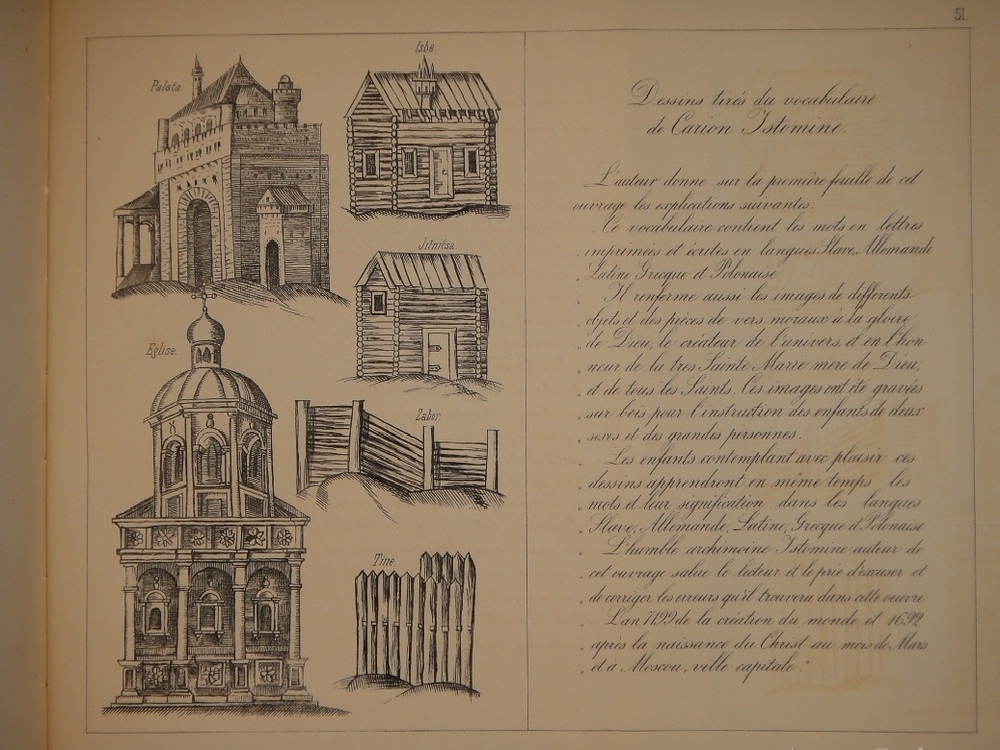 51.
Palata.
Isba.
Jitnitsa.
Eglise.
Zabor.
Tine.
Dessins tirés du vocabulaire
de Carion Istomine.
L'auteur donne sur la première feuille de cet
ouvrage les explications suivantes.
"Ce vocabulaire contient les mots en lettres
"imprimées et écrites en langues Slave, Allemande
"Latine Grecque et Polonaise.
"Il renferme aussi les images de différents
"objets et des pièces de vers moraux à la gloire
"de Dieu, le créateur de l'univers, et en l'hon-
"neur de la tres Sainte Marie mere de Dieu,
"et de tous les Saints. Ces images ont été gravées
"sur bois pour l'instruction des enfants de deux
"sexes et des grandes personnes.
"Les enfants contemplant avec plaisir ces
"dessins apprendront en même temps les
"mots et leur signification dans les langues
"Slave, Allemande, Latine, Grecque et Polonaise
"L'humble archimoine Istomine auteur de
"cet ouvrage salue le lecteur et le prie d'excuser et
"de corriger les erreurs qu'il trouvera dans cette oeuvre
"L'an 7199 de la création du monde et 1692
"après la naissance du Christ au mois de Mars
"et à Moscou, ville capitale."